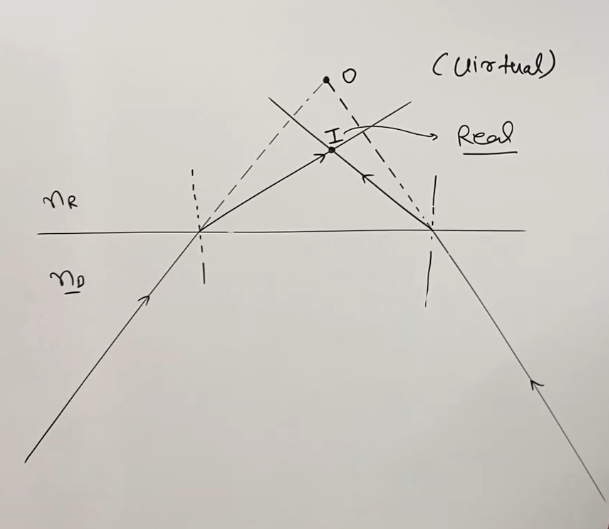 O
(Virtual)
I
Real
n_R
n_D